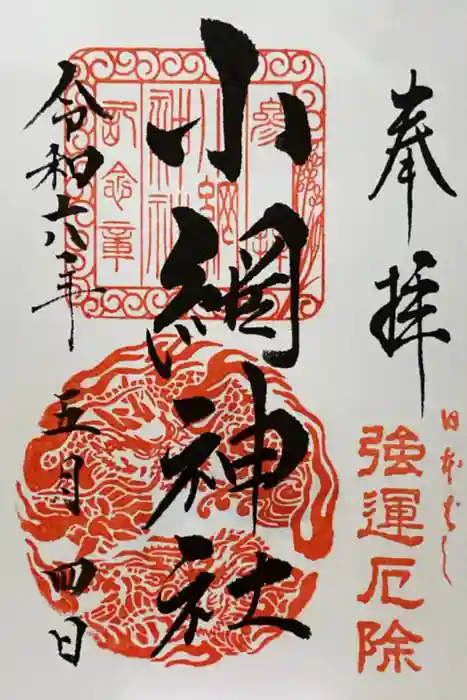 奉拝
日本ばし
強運厄除
小網神社
参拝
小網神社
記念章
令和六年
五月四日